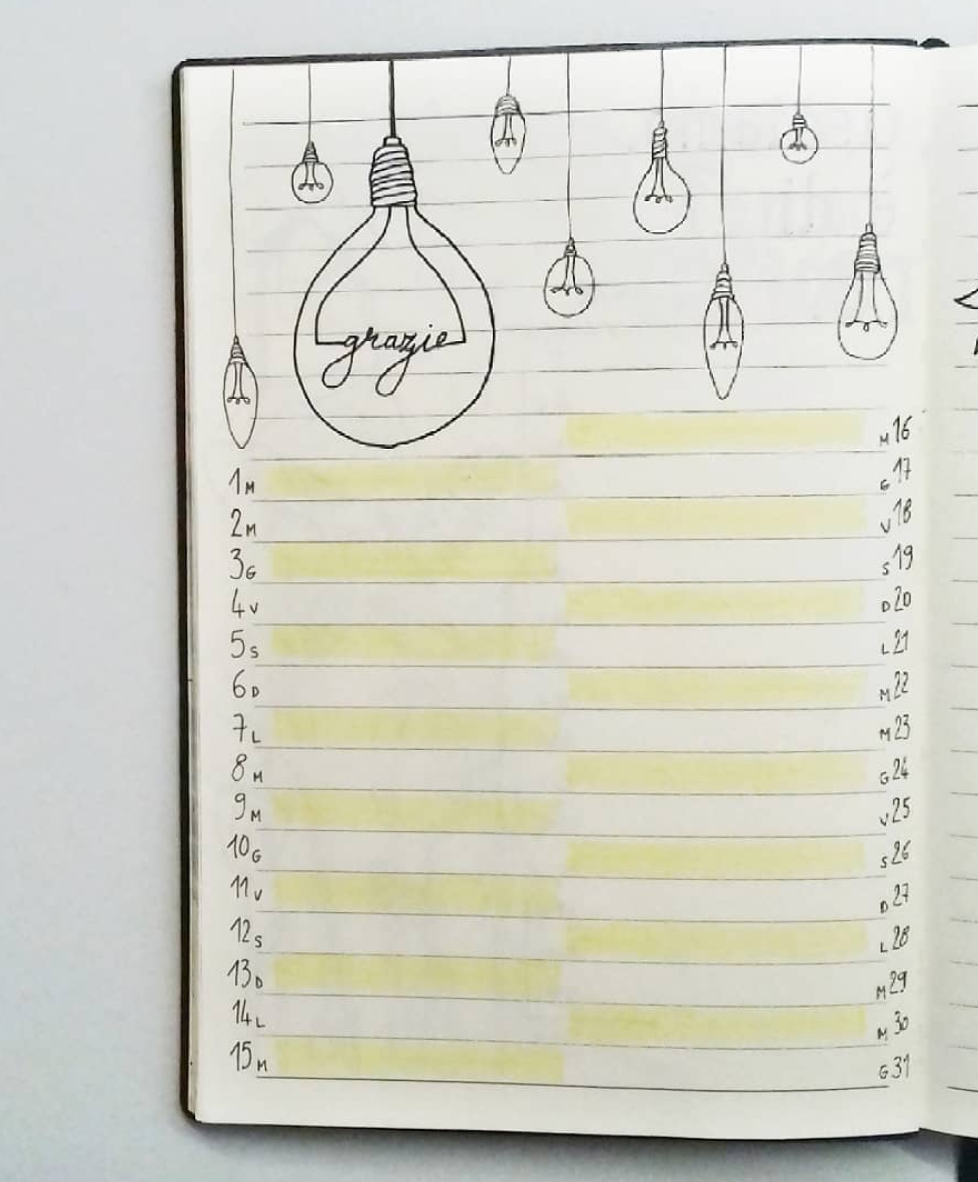 grazie
1 M
2 M
3 G
4 V
5 S
6 D
7 L
8 M
9 M
10 G
11 V
12 S
13 D
14 L
15 M
M 16
G 17
V 18
S 19
D 20
L 21
M 22
M 23
G 24
V 25
S 26
D 27
L 28
M 29
M 30
G 31